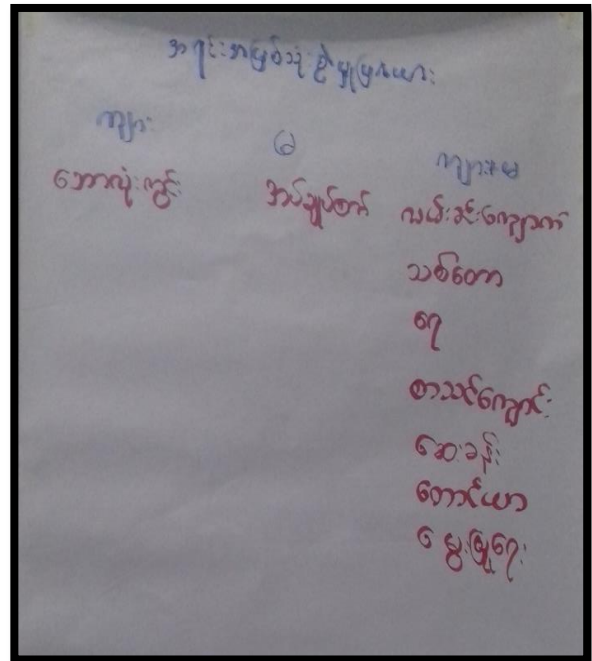 အရင်းအမြစ်သုံးစွဲမှုပြဇယား
ကျား
မ
ကျား+မ
ဘောလုံးကွင်း
အပ်ချုပ်စက်
လမ်းခင်းကျောက်
သစ်တော
ရေ
စာသင်ကျောင်း
ဆေးခန်း
တောင်ယာ
မွေးမြူရေး